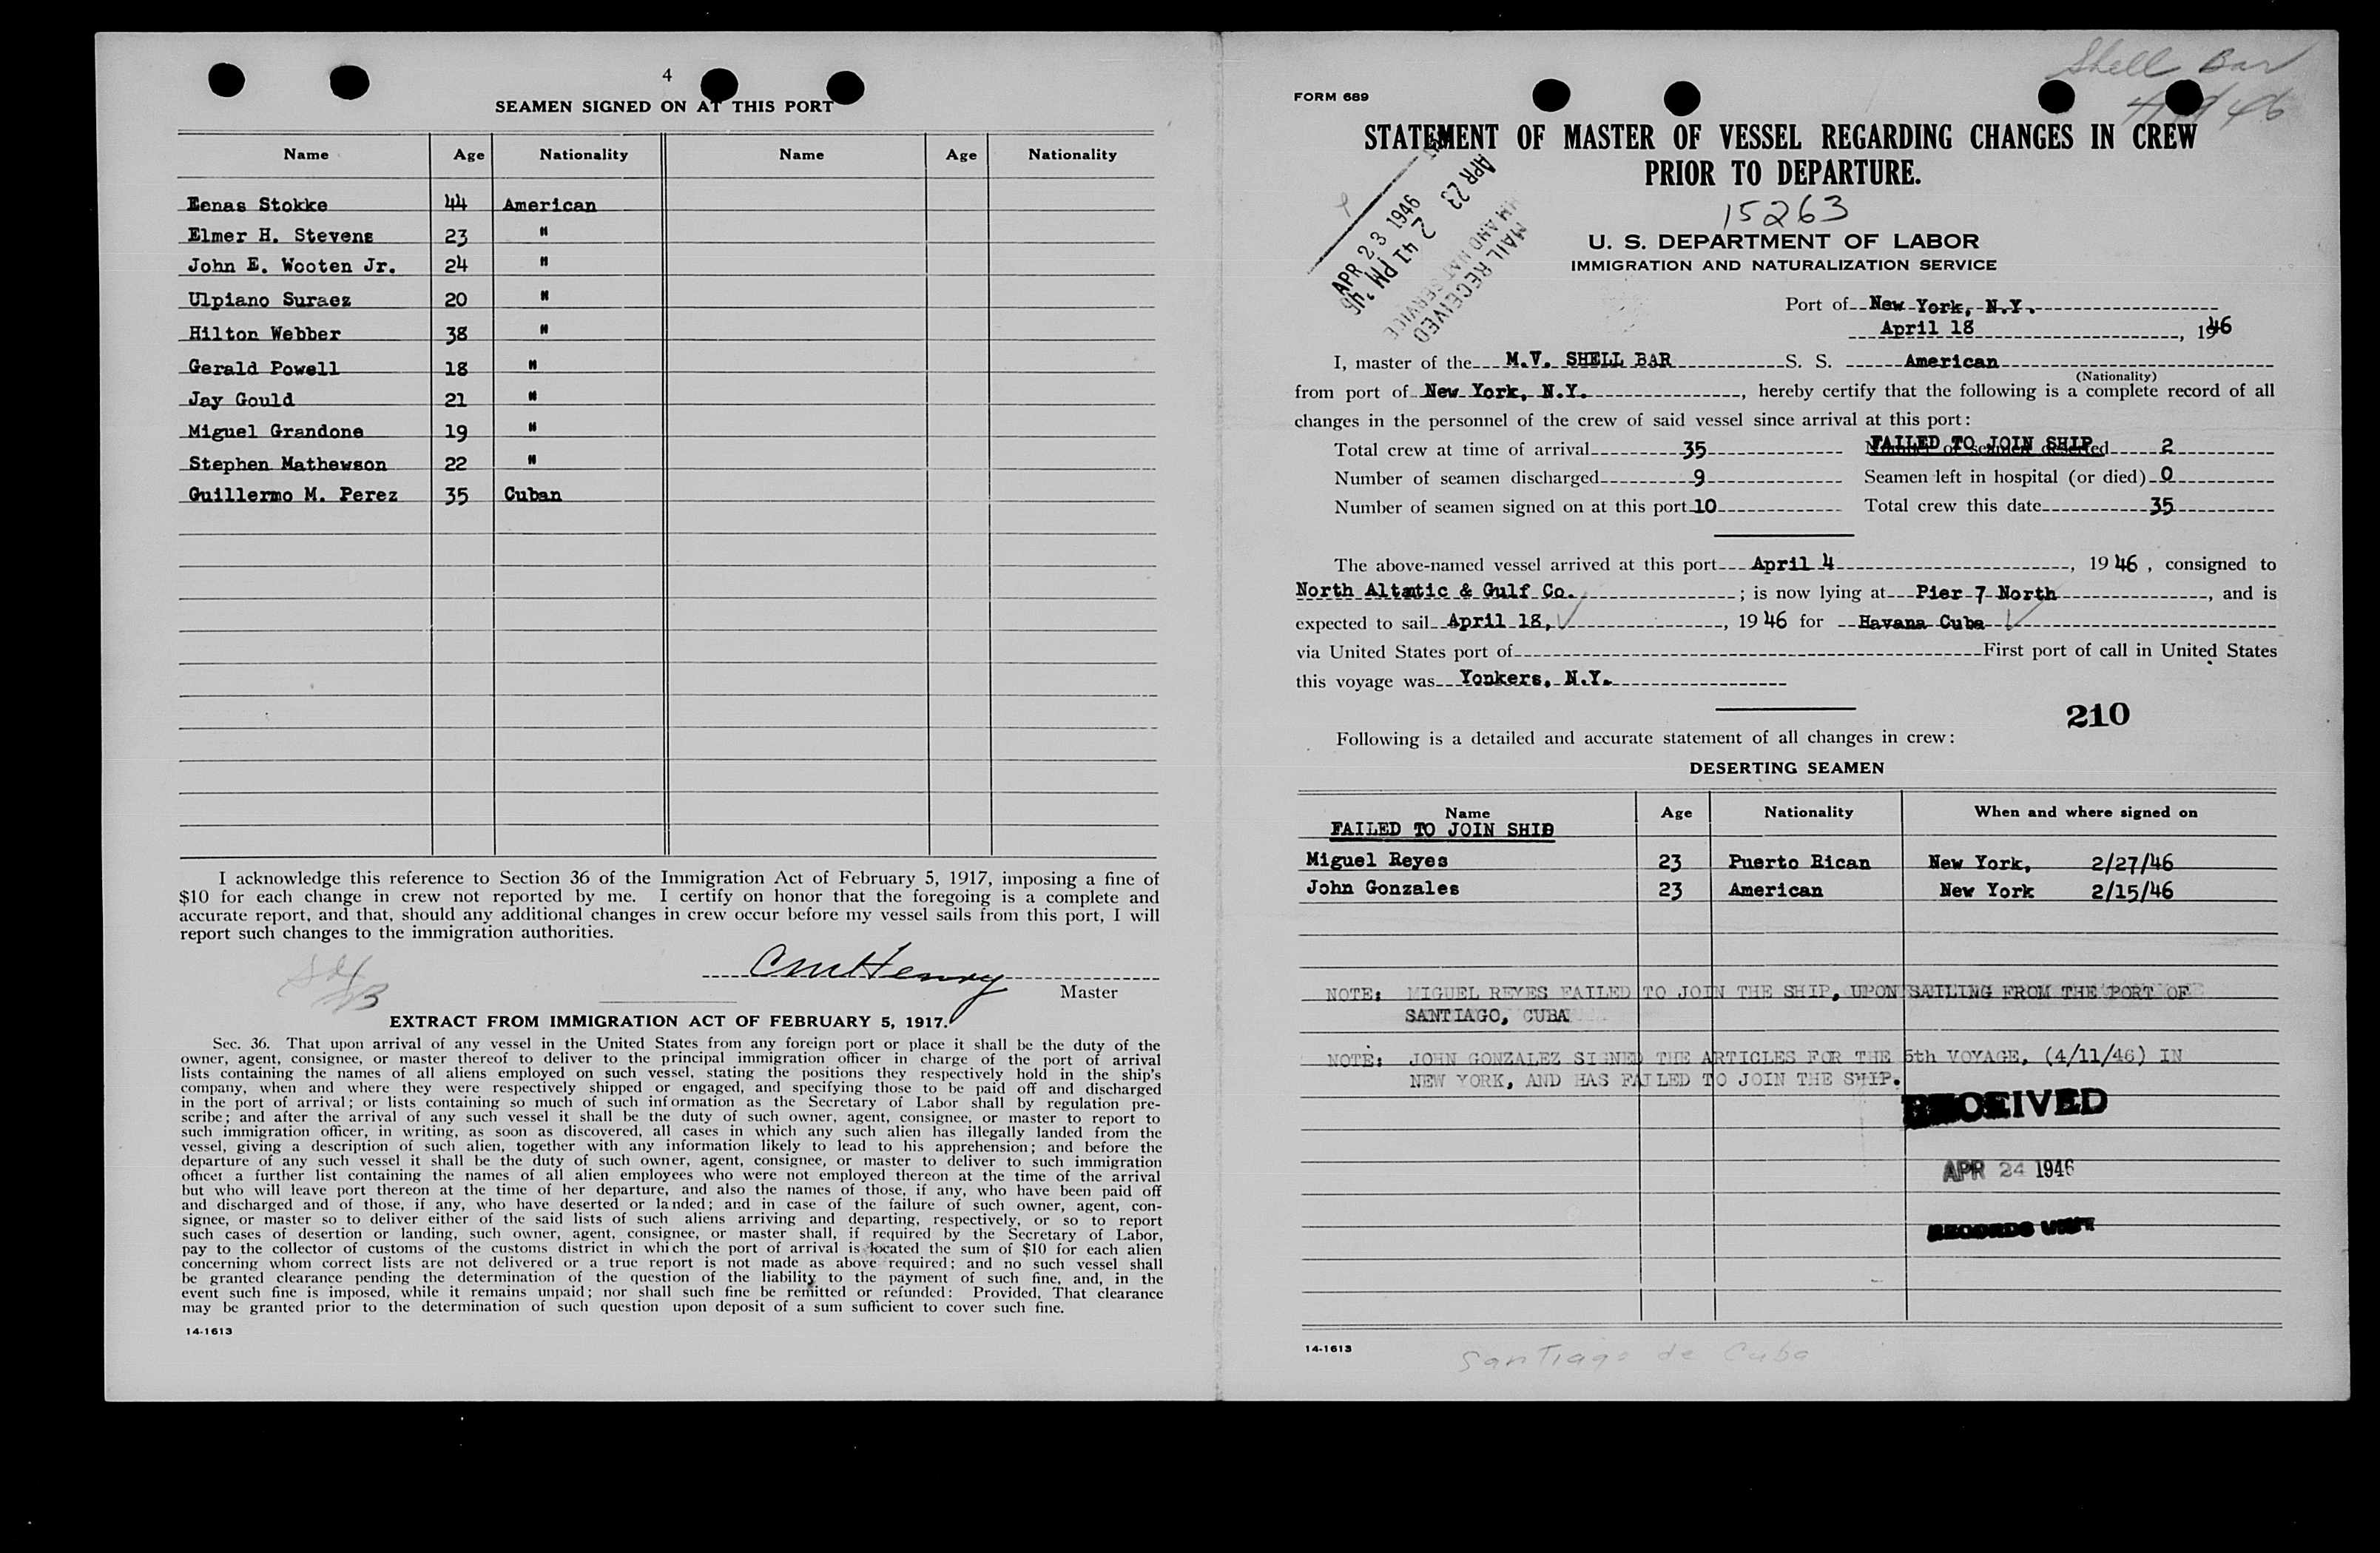 4
SEAMEN SIGNED ON AT THIS PORT
Name Age Nationality Name Age Nationality
Eenas Stokke 44 American
Elmer H. Stevens 23 "
John E. Wooten Jr. 24 "
Ulpiano Suraez 20 "
Hilton Webber 38 "
Gerald Powell 18 "
Jay Gould 21 "
Miguel Grandone 19 "
Stephen Mathewson 22 "
Guillermo M. Perez 35 Cuban
I acknowledge this reference to Section 36 of the Immigration Act of February 5, 1917, imposing a fine of
$10 for each change in crew not reported by me. I certify on honor that the foregoing is a complete and
accurate report, and that, should any additional changes in crew occur before my vessel sails from this port, I will
report such changes to the immigration authorities.
CMcHenry
Master
EXTRACT FROM IMMIGRATION ACT OF FEBRUARY 5, 1917.
Sec. 36. That upon arrival of any vessel in the United States from any foreign port or place it shall be the duty of the
owner, agent, consignee, or master thereof to deliver to the principal immigration officer in charge of the port of arrival
lists containing the names of all aliens employed on such vessel, stating the positions they respectively hold in the ship's
company, when and where they were respectively shipped or engaged, and specifying those to be paid off and discharged
in the port of arrival; or lists containing so much of such information as the Secretary of Labor shall by regulation pre-
scribe; and after the arrival of any such vessel it shall be the duty of such owner, agent, consignee, or master to report to
such immigration officer, in writing, as soon as discovered, all cases in which any such alien has illegally landed from the
vessel, giving a description of such alien, together with any information likely to lead to his apprehension; and before the
departure of any such vessel it shall be the duty of such owner, agent, consignee, or master to deliver to such immigration
officer a further list containing the names of all alien employees who were not employed thereon at the time of the arrival
but who will leave port thereon at the time of her departure, and also the names of those, if any, who have been paid off
and discharged and of those, if any, who have deserted or landed; and in case of the failure of such owner, agent, con-
signee, or master so to deliver either of the said lists of such aliens arriving and departing, respectively, or so to report
such cases of desertion or landing, such owner, agent, consignee, or master shall, if required by the Secretary of Labor,
pay to the collector of customs of the customs district in which the port of arrival is located the sum of $10 for each alien
concerning whom correct lists are not delivered or a true report is not made as above required; and no such vessel shall
be granted clearance pending the determination of the question of the liability to the payment of such fine, and, in the
event such fine is imposed, while it remains unpaid; nor shall such fine be remitted or refunded: Provided, That clearance
may be granted prior to the determination of such question upon deposit of a sum sufficient to cover such fine.
14-1613
Shell Bar
FORM 689
STATEMENT OF MASTER OF VESSEL REGARDING CHANGES IN CREW
PRIOR TO DEPARTURE.
15263
APR 23 1946
APR 23 2 41 PM '46
MAIL RECEIVED
U. S. DEPARTMENT OF LABOR
IMMIGRATION AND NATURALIZATION SERVICE
Port of New York, N.Y.
April 18, 1946
I, master of the M.V. SHELL BAR S. S. American
(Nationality)
from port of New York, N.Y., hereby certify that the following is a complete record of all
changes in the personnel of the crew of said vessel since arrival at this port:
Total crew at time of arrival 35 FAILED TO JOIN SHIP 2
Number of seamen discharged 9 Seamen left in hospital (or died) 0
Number of seamen signed on at this port 10 Total crew this date 35
The above-named vessel arrived at this port April 4, 1946, consigned to
North Altmtic & Gulf Co.; is now lying at Pier 7 North, and is
expected to sail April 18, 1946 for Havana Cuba
via United States port of First port of call in United States
this voyage was Yonkers, N.Y.
210
Following is a detailed and accurate statement of all changes in crew:
DESERTING SEAMEN
Name Age Nationality When and where signed on
FAILED TO JOIN SHIP
Miguel Reyes 23 Puerto Rican New York, 2/27/46
John Gonzales 23 American New York 2/15/46
NOTE: MIGUEL REYES FAILED TO JOIN THE SHIP, UPON SAILING FROM THE PORT OF
SANTIAGO, CUBA
NOTE: JOHN GONZALEZ SIGNED THE ARTICLES FOR THE 5th VOYAGE, (4/11/46) IN
NEW YORK, AND HAS FAILED TO JOIN THE SHIP.
RECEIVED
APR 24 1946
RECORDS UNIT
14-1613
Santiago de Cuba